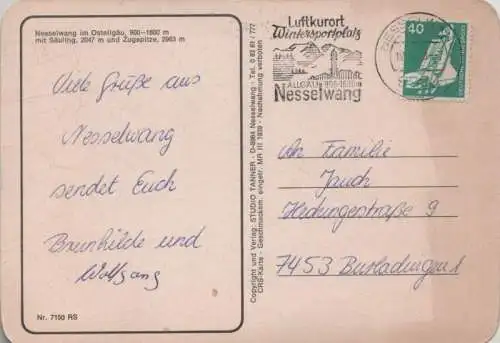 Nesselwang im Ostallgäu, 900–1600 m
mit Säuling, 2047 m und Zugspitze, 2963 m
Viele Grüße aus
Nesselwang
sendet Euch
Brunhilde und
Wolfgang
Nr. 7150 RS
Copyright und Verlag: STUDIO TANNER - D-8964 Nesselwang - Tel. 0 83 61 / 777
CRS-Karte - Geschmacksm. eingetr. MR III 1939 - Nachahmung verboten
Luftkurort
Wintersportplatz
ALLGÄU 900-1600m
Nesselwang
40
An Familie
Jauch
Hechingerstraße 9
7453 Burladingen 1